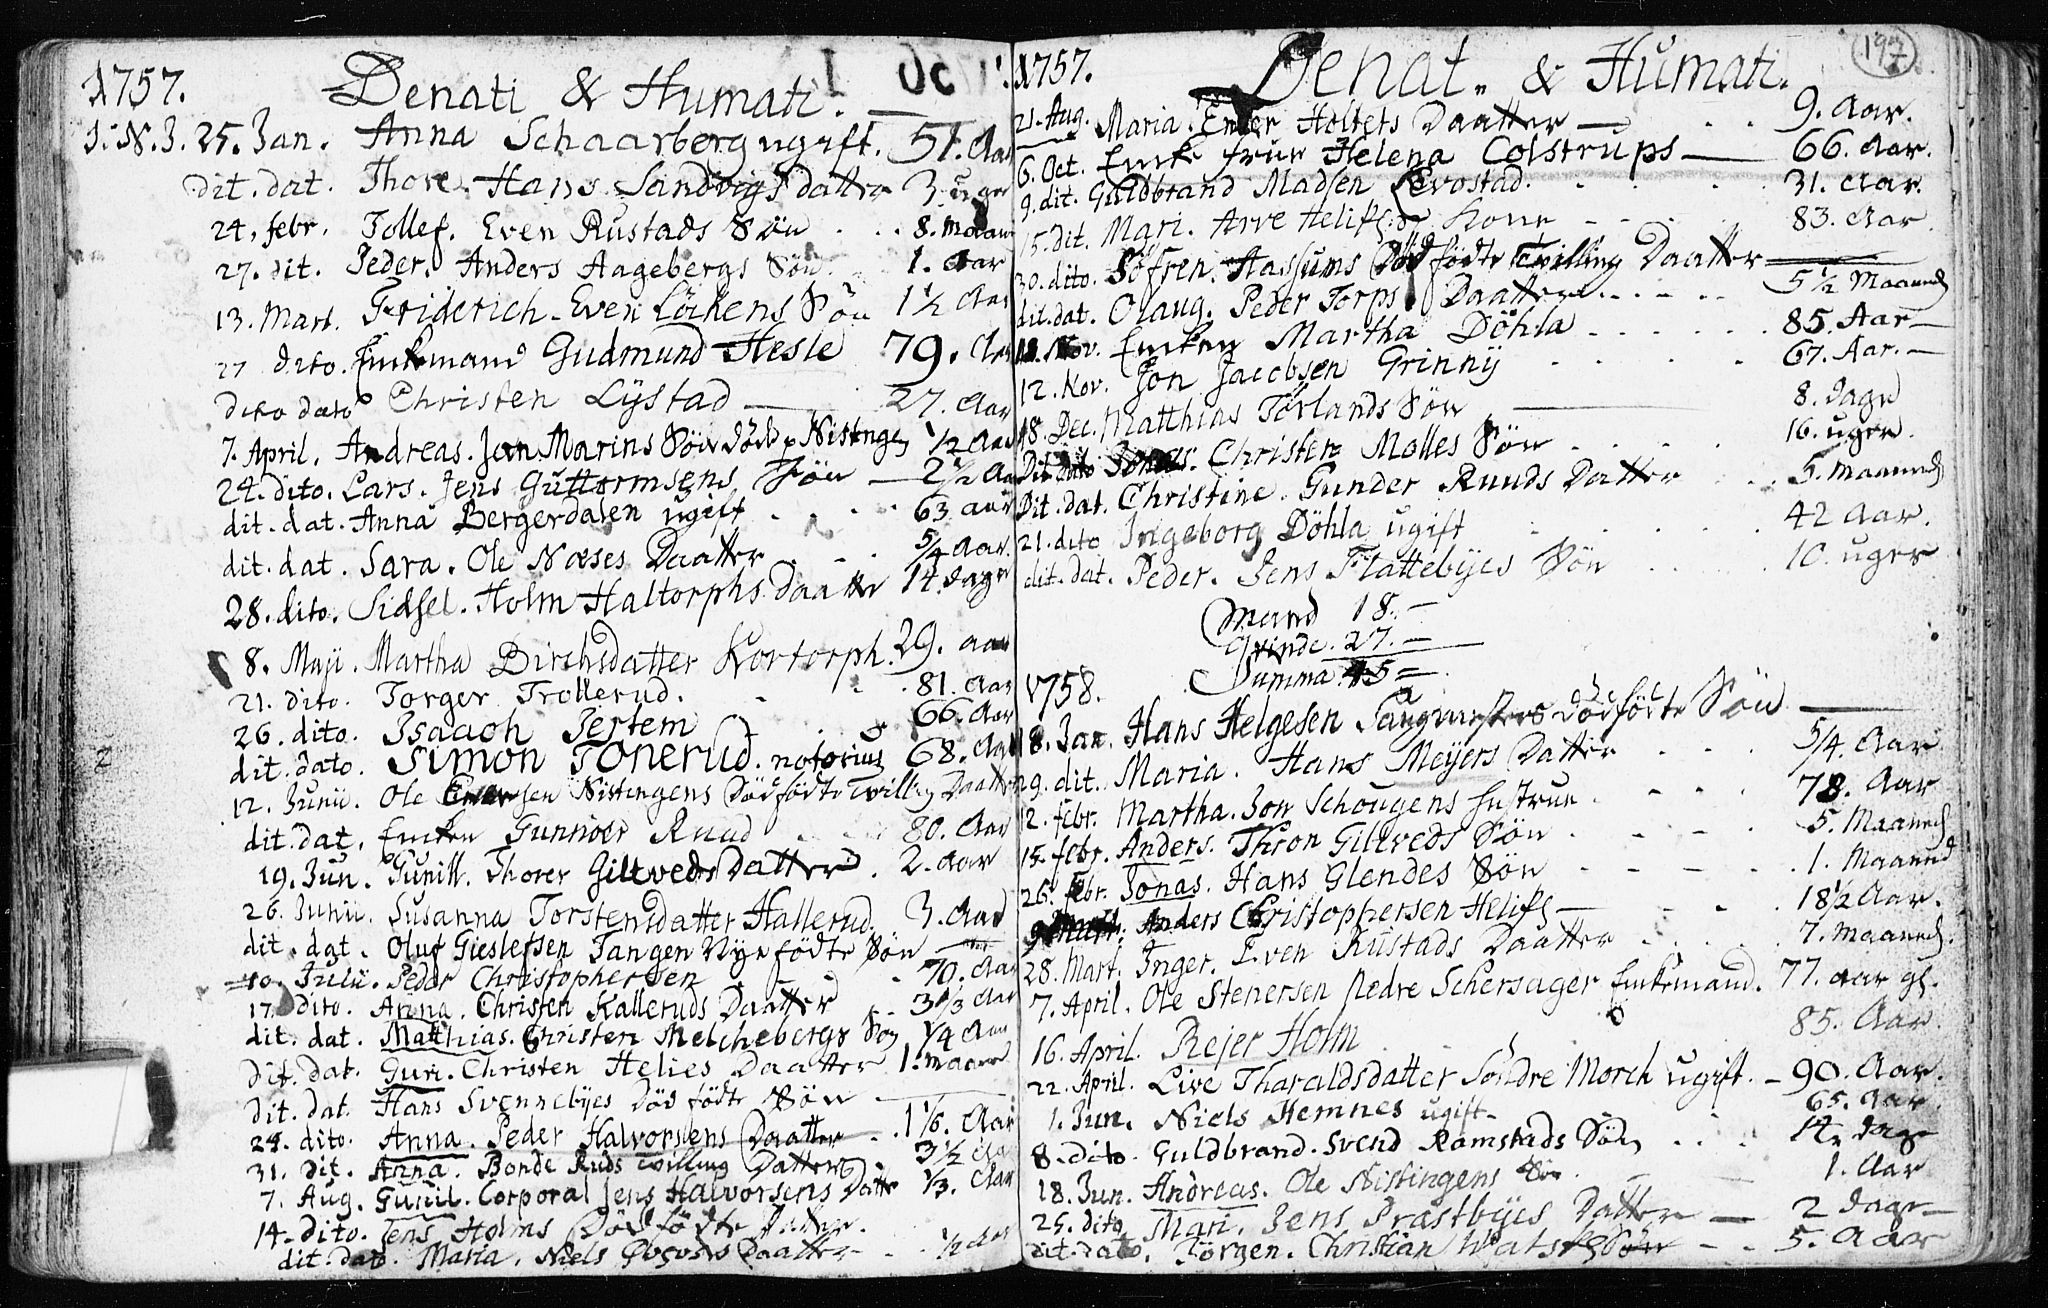 1757. Denati & Humati.
J. N. J. 25. Jan. Anna Schaarberg ugift. 51. Aar
dit. dat. Thore. Hans Sandvigs datter 3. uger
24. febr. Tollef. Even Rustads Søn 8. Maan
27. dit. Peder. Anders Aagebergs Søn. 1. Aar
13. Mart. Friderich. Even Löchens Søn 1 1/2 Aar
27 dito. Enkemand Gudmund Hesle 79. Aar
dito dato Christen Lÿstad 27. Aar
7. April. Andreas. Jan Marins Søn død p Nistnge 1/2 Aar
24. dito. Lars. Jens Guttormsens Søn 2 1/2 Aar
dit. dat. Anna Bergerdalen ugift 63 aar
dit. dat. Sara. Ole Næses Daatter 5/4 Aar.
28. dito. Sidsel. Holm Haltorphs Daatter 14. dage
8. Maji. Martha Birchsdatter Kortorph. 29. aar
21. dito. Torger Trollerud. 81. Aar
26. dito. Isaach Jertem 66. Aar
dit. dato. Simon Tonerud. notorius 68. Aar
12. Junii. Ole Enersen Nistingens Dødfødte Tvilling Daatter
dit. dat. Enken Gunnoer Ruud 80. Aar
19. Jun. Gunill. Thorer Giltveds Datter. 2. Aar
26. Junii. Susanna Torstensdatter Hallerud. 3. Aar
dit. dat. Oluf Gieslefsen Tangen Nyefödte Søn
10. Julii. Peder Christophersen 70. Aar
17. dito. Anna. Christen Kalleruds Daatter 3 1/3 Aar
dit. dat. Matthias. Christen Melchebergs Søn 1/4 Aar
dit. dat. Guri. Christen Helies Daatter 1. Maan
dit. dat. Hans Svennebÿes Død fødte Søn
24. dito. Anna. Peder Halvorsens Daatter 1 1/6. Aar
31. dit. Anna. Bonde Ruds tvilling Datter 3 1/2 Aar
7. Aug. Gunil. Corporal Jens Halvorsens Datter 1/3. Aar
14. dito. Jens Holms Dødfødte Datter.
dit. dat. Maria. Niels Daatter 1/2 Aar
197
1757. Denat. & Humati.
21. Aug. Maria. Ener Holtets Daatter 9. Aar.
6. Oct. Enke frue Helena Colstrups 66. Aar.
9. dit. Guldbrand Madsen Levostad. 31. Aar.
15. dit. Mari. Arve Kone 83. Aar
30. dito. Söfren. Hassums Död födte Tvilling Daatter
dit. dat. Olaug. Peder Torps Daatter 5 1/2 Maaned
11. Nov. Enken Martha Döhla 85. Aar
12. Nov. Jon Jacobsen Grinnÿ 67. Aar.
18. Dec. Matthias Törlands Søn 8. Dage
Dit. dato Jonas. Christen Molles Søn 16. uger.
Dit. dat. Christine. Gunder Ruuds Datter 5. Maaned
21. dito Ingeborg Döhla ugift 42 Aar.
dit. dat. Peder. Jens Flattebÿes Søn 10. uger
Mand 18.
Qvinde 27.
Summa 45
1758.
18. Jan. Hans Helgesen Saugmesters dødfödte Søn
29. dit. Maria. Hans Meÿers Datter 5/4. Aar
12. febr. Martha. Jon Schougens Hustrue 78. Aar
15. febr. Anders. Thron Giltveds Søn 5. Maaned
26. febr. Jonas. Hans Glendes Søn 1. Maaned
Mart. Anders Christophersen 18 1/2 Aar.
28. Mart. Inger. Even Rustads Daatter 7. Maaned.
7. April. Ole Stenersen Nedre Schersager Enkemand. 77. aar gl.
16. April. Rejer Holm 85. Aar.
22. April. Live Tharaldsdatter Söndre Morch ugift. 90. Aar.
1. Jun. Niels Hemnes ugift 65. Aar
8. dito. Guldbrand. Svend Ramstads Søn 14. dage
18. Jun. Andreas. Ole Nistingens Søn 1. Aar
25. dito Mari. Jens Prastbÿes Datter 2 dage
dit. dato. Jörgen. Christian Søn 5. Aar